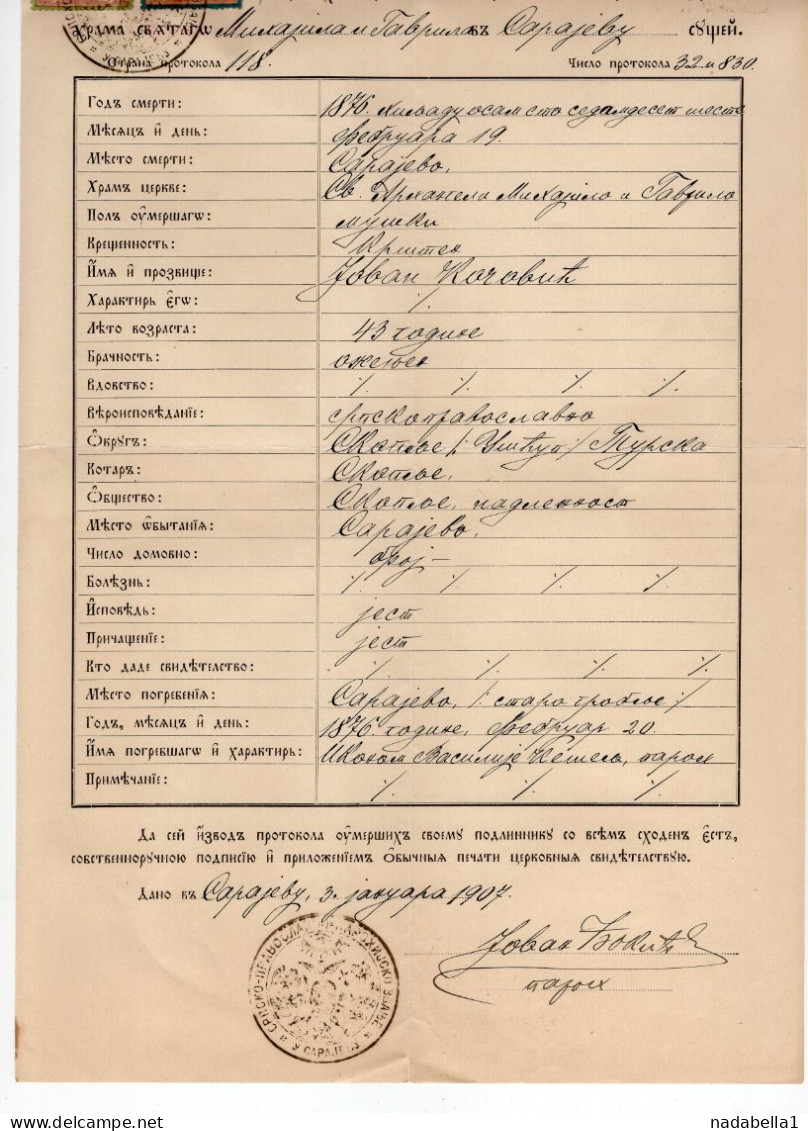 Храма свѧтагѡ Михајила и Гаврила въ Сарајеву сꙋщей.
Страна протокола 118. Число протокола 32 и 830.
Годъ смерти: 1876. хиљаду осам сто седамдесет шесте
Мѣсяцъ й день: Фебруара 19.
Мѣсто смерти: Сарајево.
Храмъ церкве: Св. Архангели Михајило и Гаврило
Полъ оумершагѡ: мушки
Крещенность: Крштен
Имѧ й прозвище: Јован Кочовић
Характиръ єгѡ: ⁒
Лѣто возраста: 43 године
Брачность: ожењен
Вдовство: ⁒ ⁒ ⁒ ⁒
Вѣроисповѣданїе: српскоправославно
Ѡкругъ: Скопље /: Ушћуп :/ Турска
Котаръ: Скопље.
Ѡбщество: Скопље, надлежност
Мѣсто ѡбытанїѧ: Сарајево.
Число домовно: број –
Болѣзнь: ⁒ ⁒ ⁒ ⁒
Исповѣдь: јест
Причащенїе: јест
Кто даде свидѣтелство: ⁒ ⁒ ⁒ ⁒
Мѣсто погребенїѧ: Сарајево, /: старо гробље :/
Годъ, мѣсяцъ й день: 1876. године, Фебруар 20.
Имѧ погребшагѡ й характиръ: Иконом Василије Кешељ, парох
Примѣчанїе: ⁒ ⁒ ⁒
Да сей изводъ протокола оумершихъ своему подлиннику со всѣмъ сходенъ єсть,
собственноручною подписїю й приложенїемъ ѡбычныѧ печати церковныѧ свидѣтелствую.
Дано въ Сарајеву, 3. јануара 1907.
Јован Ђокић
парох
СРПСКО-ПРАВОСЛАВНО ПАРОХИЈСКО ЗВАЊЕ
У САРАЈЕВУ
delcampe.net
nadabella1